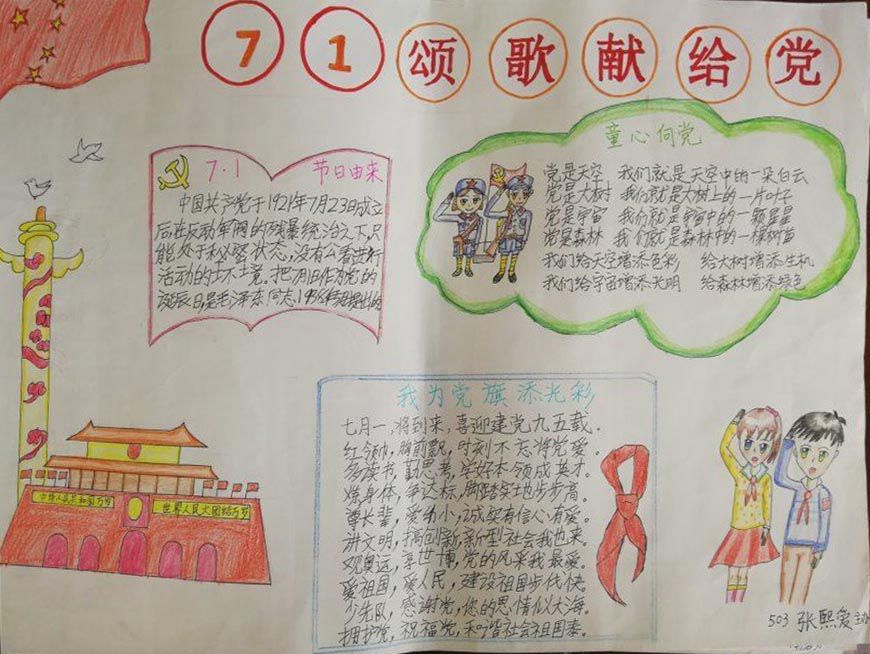 71颂歌献给党
7.1 节日由来
中国共产党于1921年7月23日成立
后,在反动军阀的残暴统治之下,只
能处于秘密状态,没有公开进行
活动的环境。把7月1日作为党的
诞辰日,是毛泽东同志1938年提出的
童心向党
党是天空 我们就是天空中的一朵白云
党是大树 我们就是大树上的一片叶子
党是宇宙 我们就是宇宙中的一颗星星
党是森林 我们就是森林中的一棵树苗
我们给天空增添色彩 给大树增添生机
我们给宇宙增添光明 给森林增添绿色
中华人民共和国万岁
世界人民大团结万岁
我为党旗添光彩
七月一,将到来,喜迎建党九五载。
红领巾,胸前飘,时刻不忘将党爱。
多读书,勤思考,学好本领成英才。
炼身体,争达标,脚踏实地步步高。
尊长辈,爱幼小,诚实有信心有爱。
讲文明,搞创新,新型社会我也来。
观奥运,享世博,党的风采我最爱。
爱祖国,爱人民,建设祖国步伐快。
少先队,感谢党,您的恩情似大海。
拥护党,祝福党,和谐社会祖国泰。
503 张熙爱